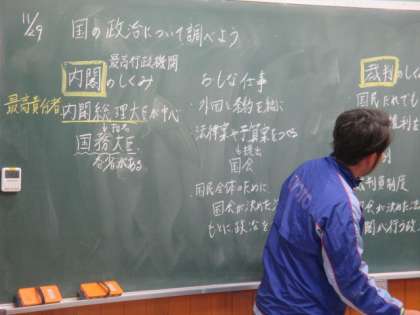 11/29
国の政治について調べよう
最高行政機関
内閣のしくみ
最高責任者 内閣総理大臣が中心
国務大臣
各省がある
おもな仕事
・外国と条約を結ぶ
・法律案や予算案をつくる
↓提出
国会
・国民全体のために
国会が決めた
もとに政治を
裁判のしく
国民だれでも
判員制度
会が決めた法
閣が行う政